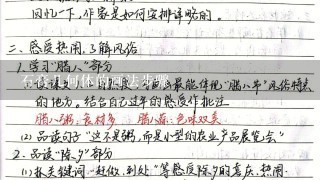 回忆一下，作家是如何安排详略的。
二、感受热闹，了解风俗
1.学习“腊八”部分
最能体现“腊八节”风俗特点
的地方。结合自己过年的感受作批注
腊八粥：食材多 腊八蒜：色味双美
(2) 品读句子“这不是粥，而是小型的农业产品展览会”
2.品读“除夕”部分
(1) 抓关键词——赶做、到处“等感受除夕的喜庆、热闹